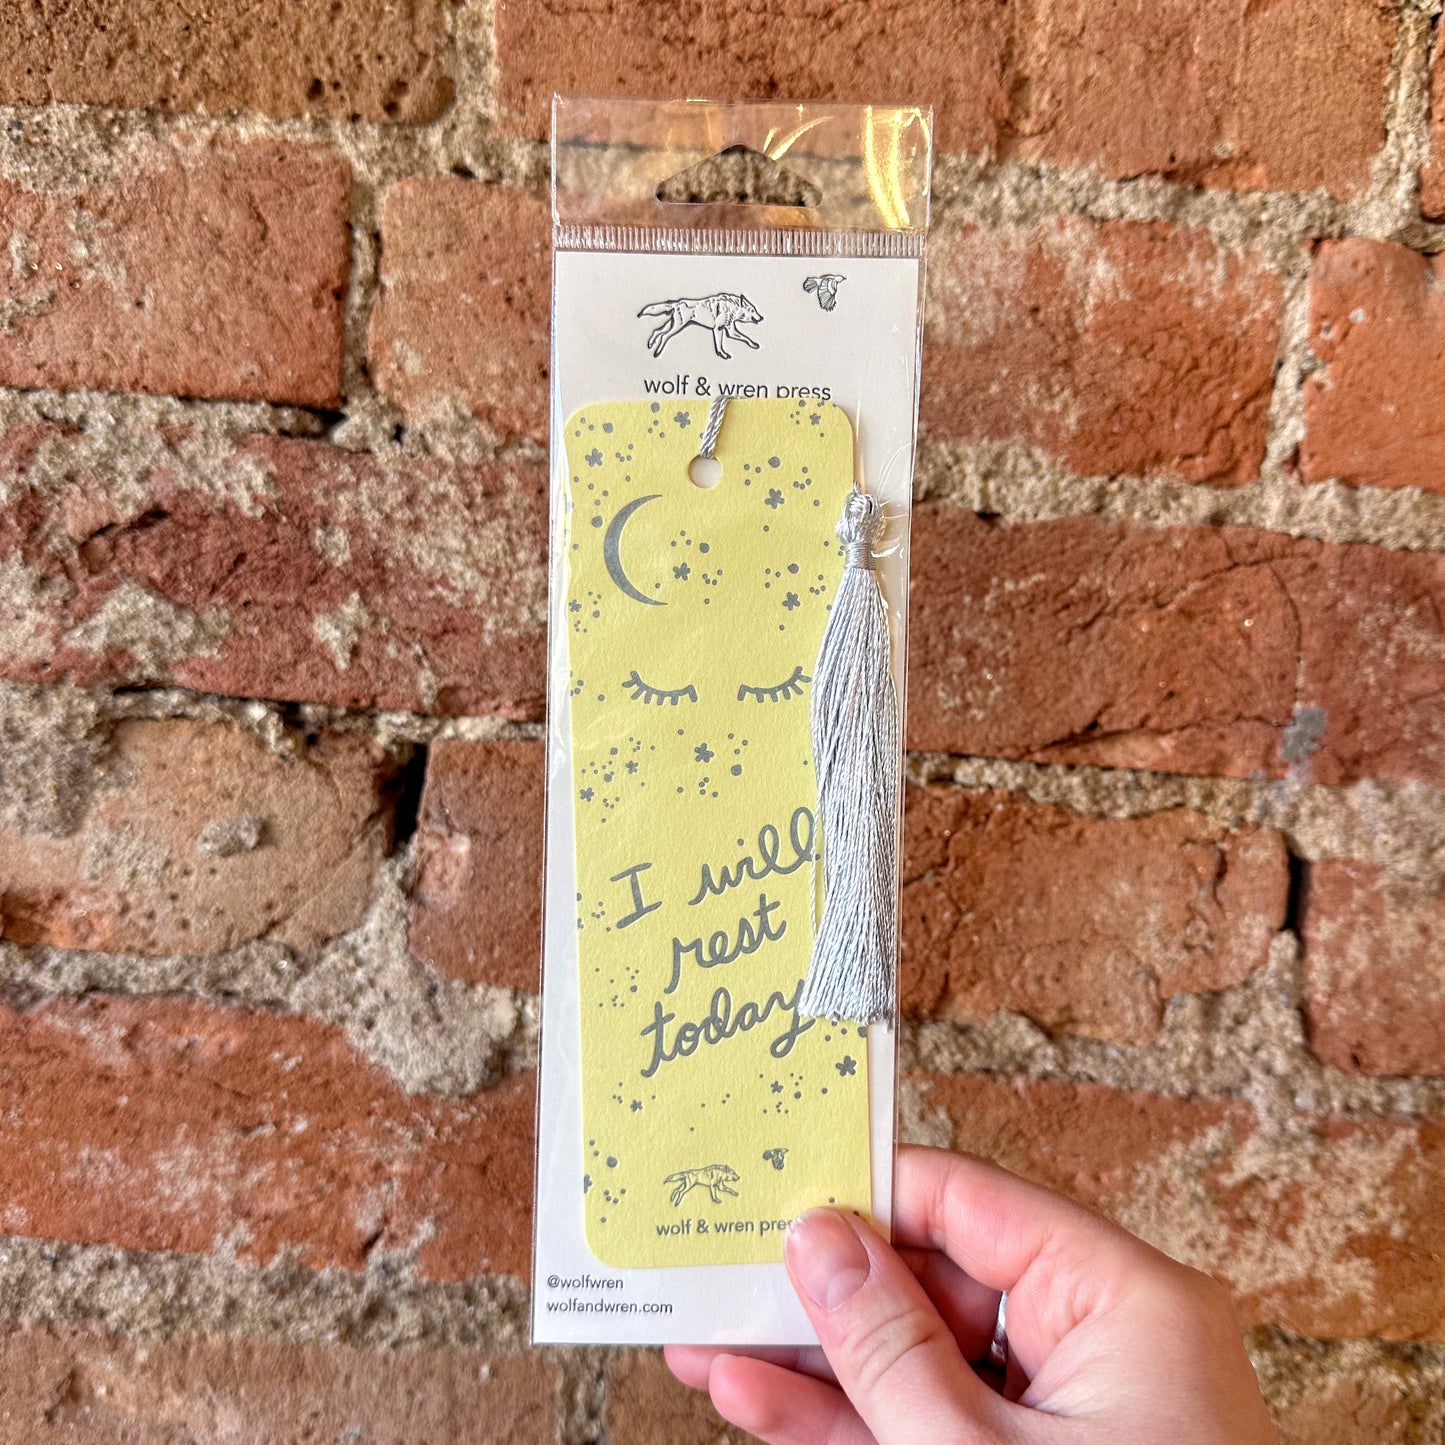 wolf & wren press
I will
rest
today
wolf & wren press
@wolfwren
wolfandwren.com